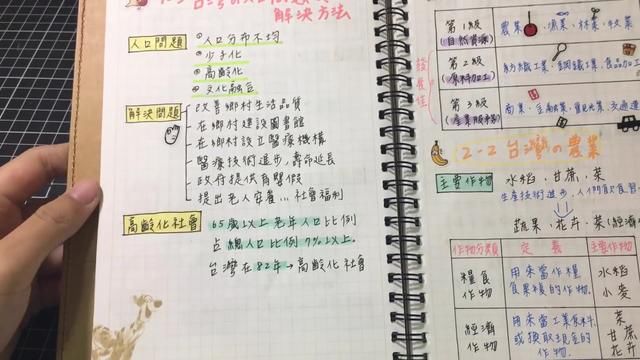 1-3 台灣の人口問題
解決方法
人口問題
①人口分布不均
②少子化
③高齡化
④文化融合
解決問題
改善鄉村生活品質
在鄉村建設圖書館
在鄉村設立醫療機構
醫療技術進步，壽命延長
政府提供育嬰假
提出老人安養...社會福利
高齡化社會
65歲以上老年人口比例
占總人口比例7%以上。
台灣在82年→高齡化社會
第1級
(自然資源)
農業、漁業、林業、牧業
第2級
(原料加工)
紡織工業、鋼鐵工業、食品加工
第3級
(產業服務)
商業、金融業、觀光業、交通運
2-2 台灣の農業
主要作物
水稻、甘蔗、茶
生產技術進步，人們飲食習
蔬果、花卉、茶(經濟
作物分類 定義 主要作物
糧食
作物
用來當作糧
食果腹的作物.
水稻
小麥
經濟
作物
用來當工業原料
或換取現金的
作物.
茶
甘蔗
花卉